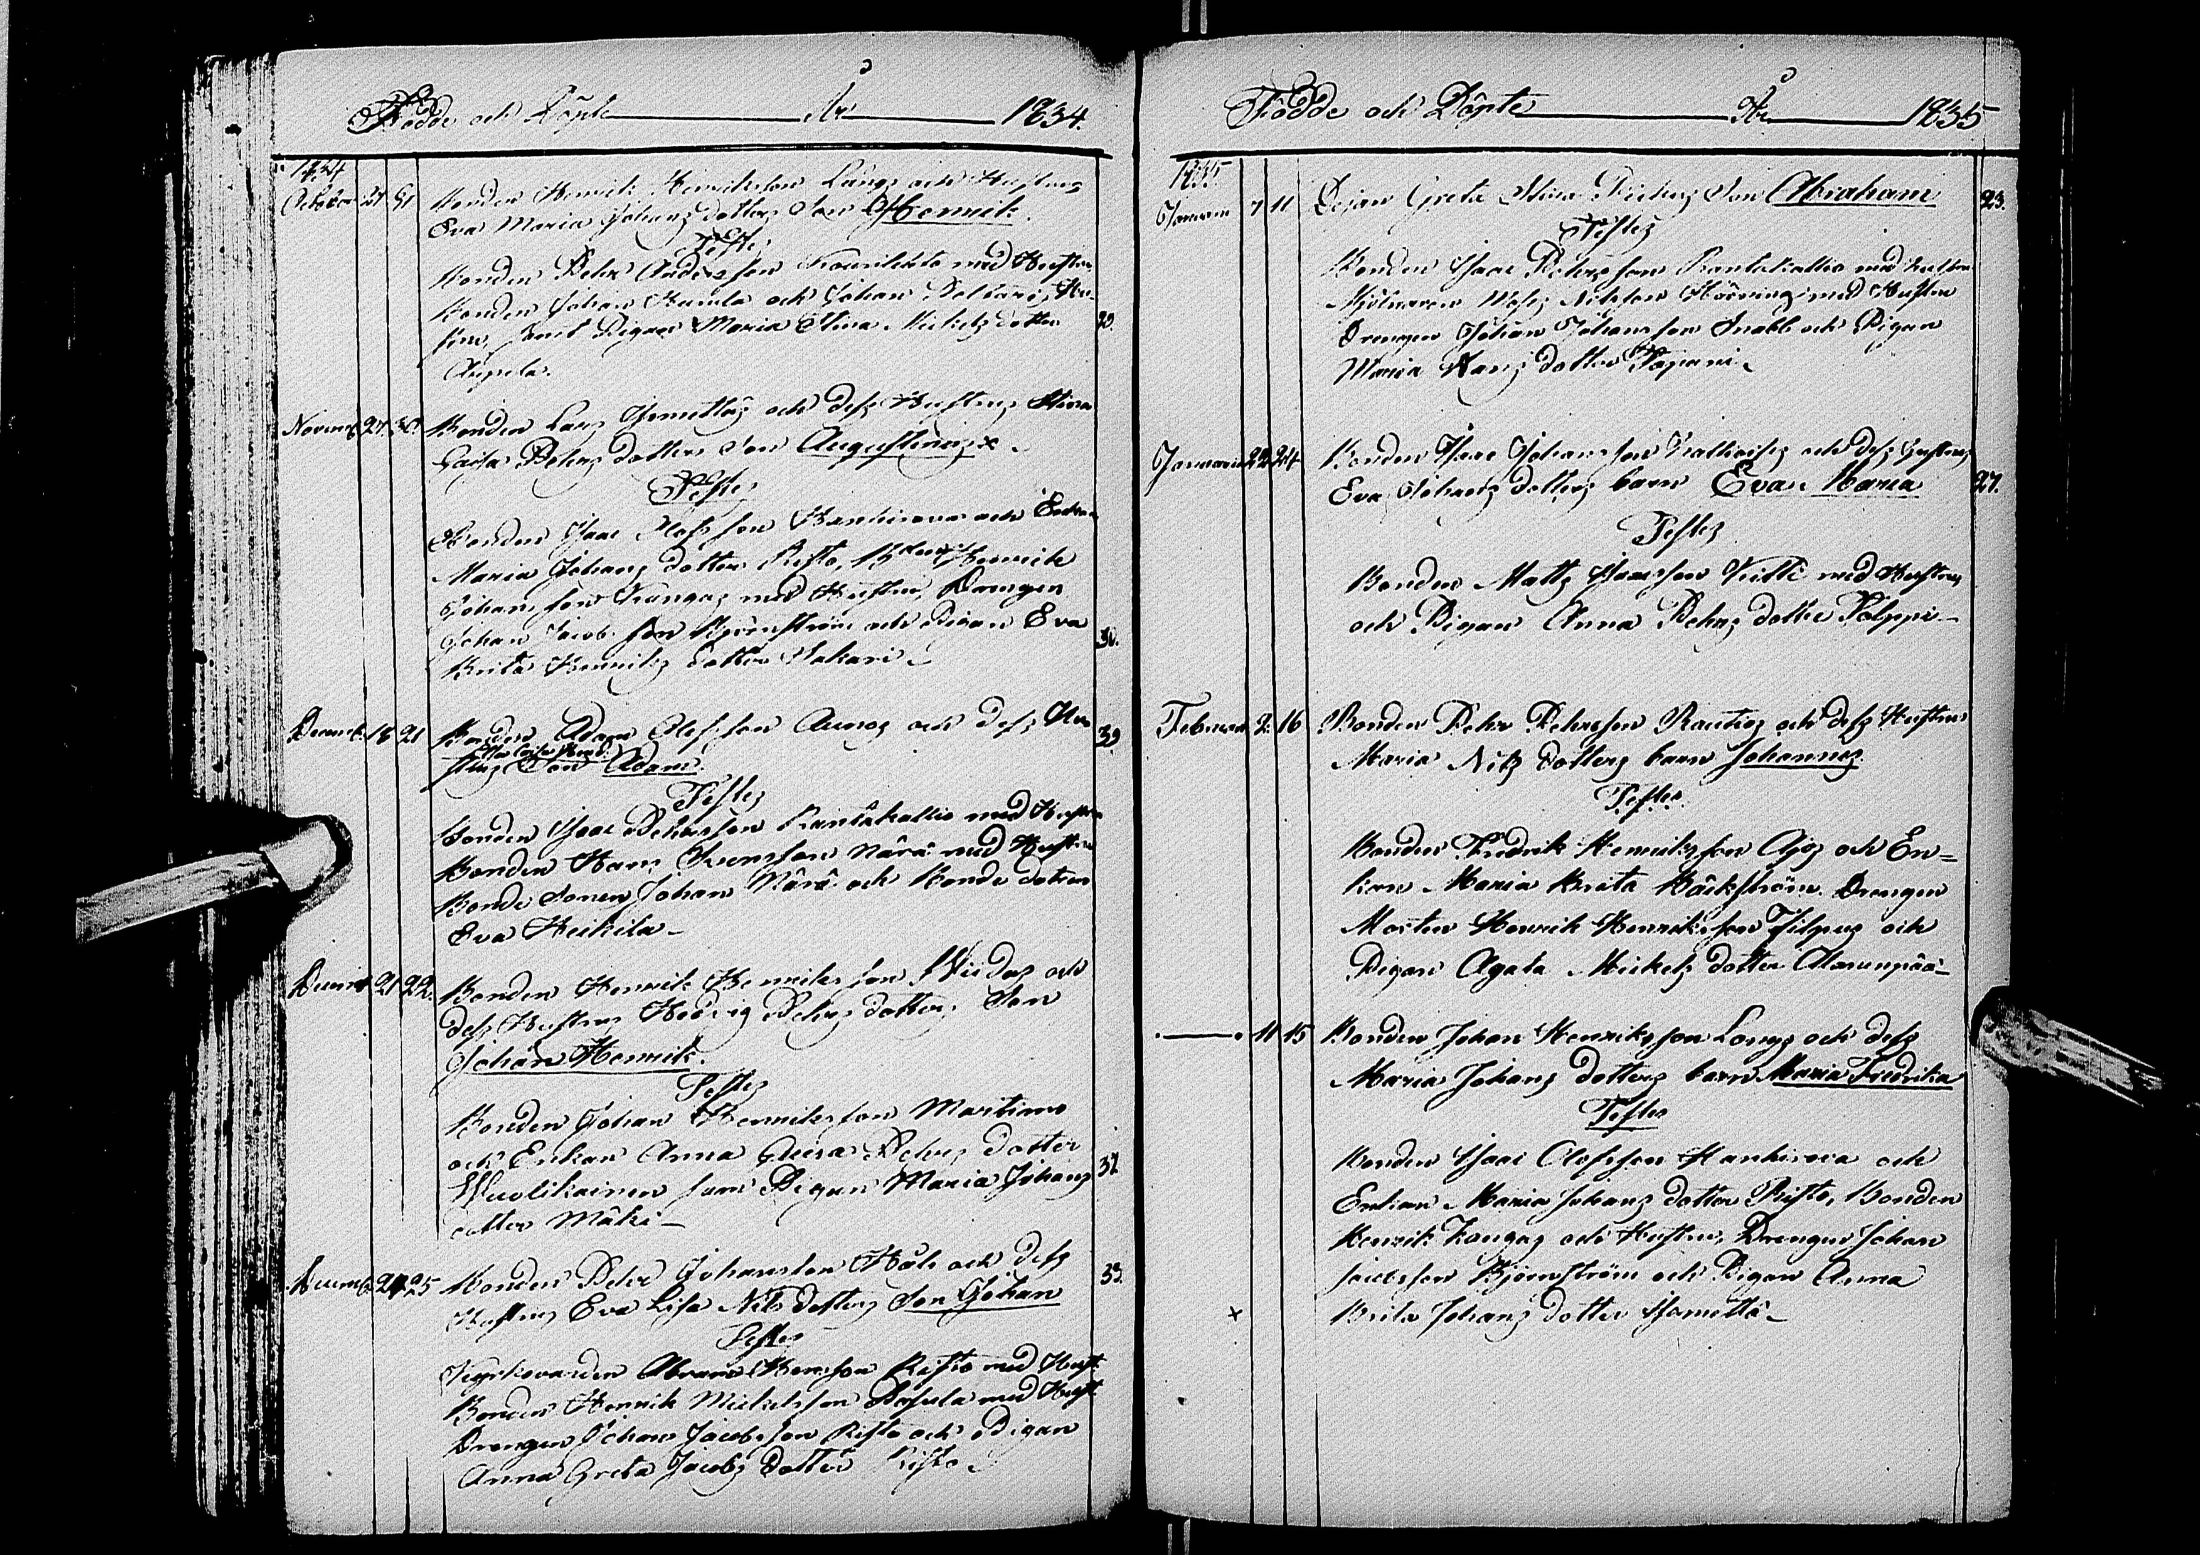 Födde och Döpte År 1834.
1834
October 27 31 Bonden Henrik Henriksson Långs och Hustrus
Eva Maria Johans dotters Son Henrik.
Testes
Bonden Petter Andersson med Hustru
Bonden Johan Kumla och Johan Hu-
stru, samt Pigan Maria Stina Michels dotter 29.
Novemb 27 30 Bonden Lars och dess Hustrus Stina
Caisa Pehrs dotters Son Augustinus x
Testes
Bonden Isaac Olofsson Hankivara och Enkan
Maria Johans dotter Risto, Bonden Henrik
Johansson Kangas med Hustru, Drengen
Johan Jacobsson Björnström och Pigan Eva 30.
Brita Henriks dotter
Decemb 18 21 Bonden Adam Olofsson och dess Hu-
strus Son Adam.
Testes
Bonden Isaac Pehrsson Rantakallio med Hustru
Bonden Hans Svensson Närä med Hustru
Bonde Sonen Johan Närä och Bonde dotren
Eva Heikila
Decemb 21 22 Bonden Henrik Henriksson och
dess Hustrus Hedvig Pehrs dotters Son
Johan Henrik.
Testes
Bonden Johan Henriksson Martimo
och Enkan Anna Pehrs dotter
Wuolikainen samt Pigan Maria Johans 32
dotter Mäki
Decemb 24 25 Bonden Petter Johansson och dess 33.
Hustrus Eva Lisa Nils dotters Son Johan
Testes
Kyrkovärden Abram Hansson Risto med Hust.
Bonden Henrik Mickelsson med Hust.
Drengen Johan Jacobsson Risto och Pigan
Anna Greta Jacobs dotter Risto
Födde och Döpte År 1835
1835
Januarii 7 11 Pigan Greta Stina Son Abraham 23.
Testes
Bonden Isaac Pehrsson Rantakallio med Hustru
Mjölnaren Nilsson med Hustru
Drengen Johan Johansson Snabb och Pigan
Maria Hans dotter
Januarii 22 24 Bonden Isaac Johansson och dess Hustrus
Eva Johans dotters barn Eva Maria 27.
Testes
Bonden Matts Isaacsson med Hustru
och Pigan Anna Pehrs dotter
Februarii 2 16 Bonden Pehr Pehrsson Rautios och dess Hustrus
Maria Nils dotters barn Johannes.
Testes.
Bonden Fredrik Henriksson Ajos och En-
kan Maria Brita Bäckström. Drengen
Morten Henrik Henriksson Filpus och
Pigan Agata Mickels dotter Alarunpää
11 15 Bonden Johan Henriksson Longs och dess
Maria Johans dotters barn Maria Fredrika
Testes
Bonden Isaac Olofsson Hankivara och
Enkan Maria Johans dotter Risto, Bonden
Henrik Kangas och Hustru, Drengen Johan
Jacobsson Björnström och Pigan Anna
x Brita Johans dotter